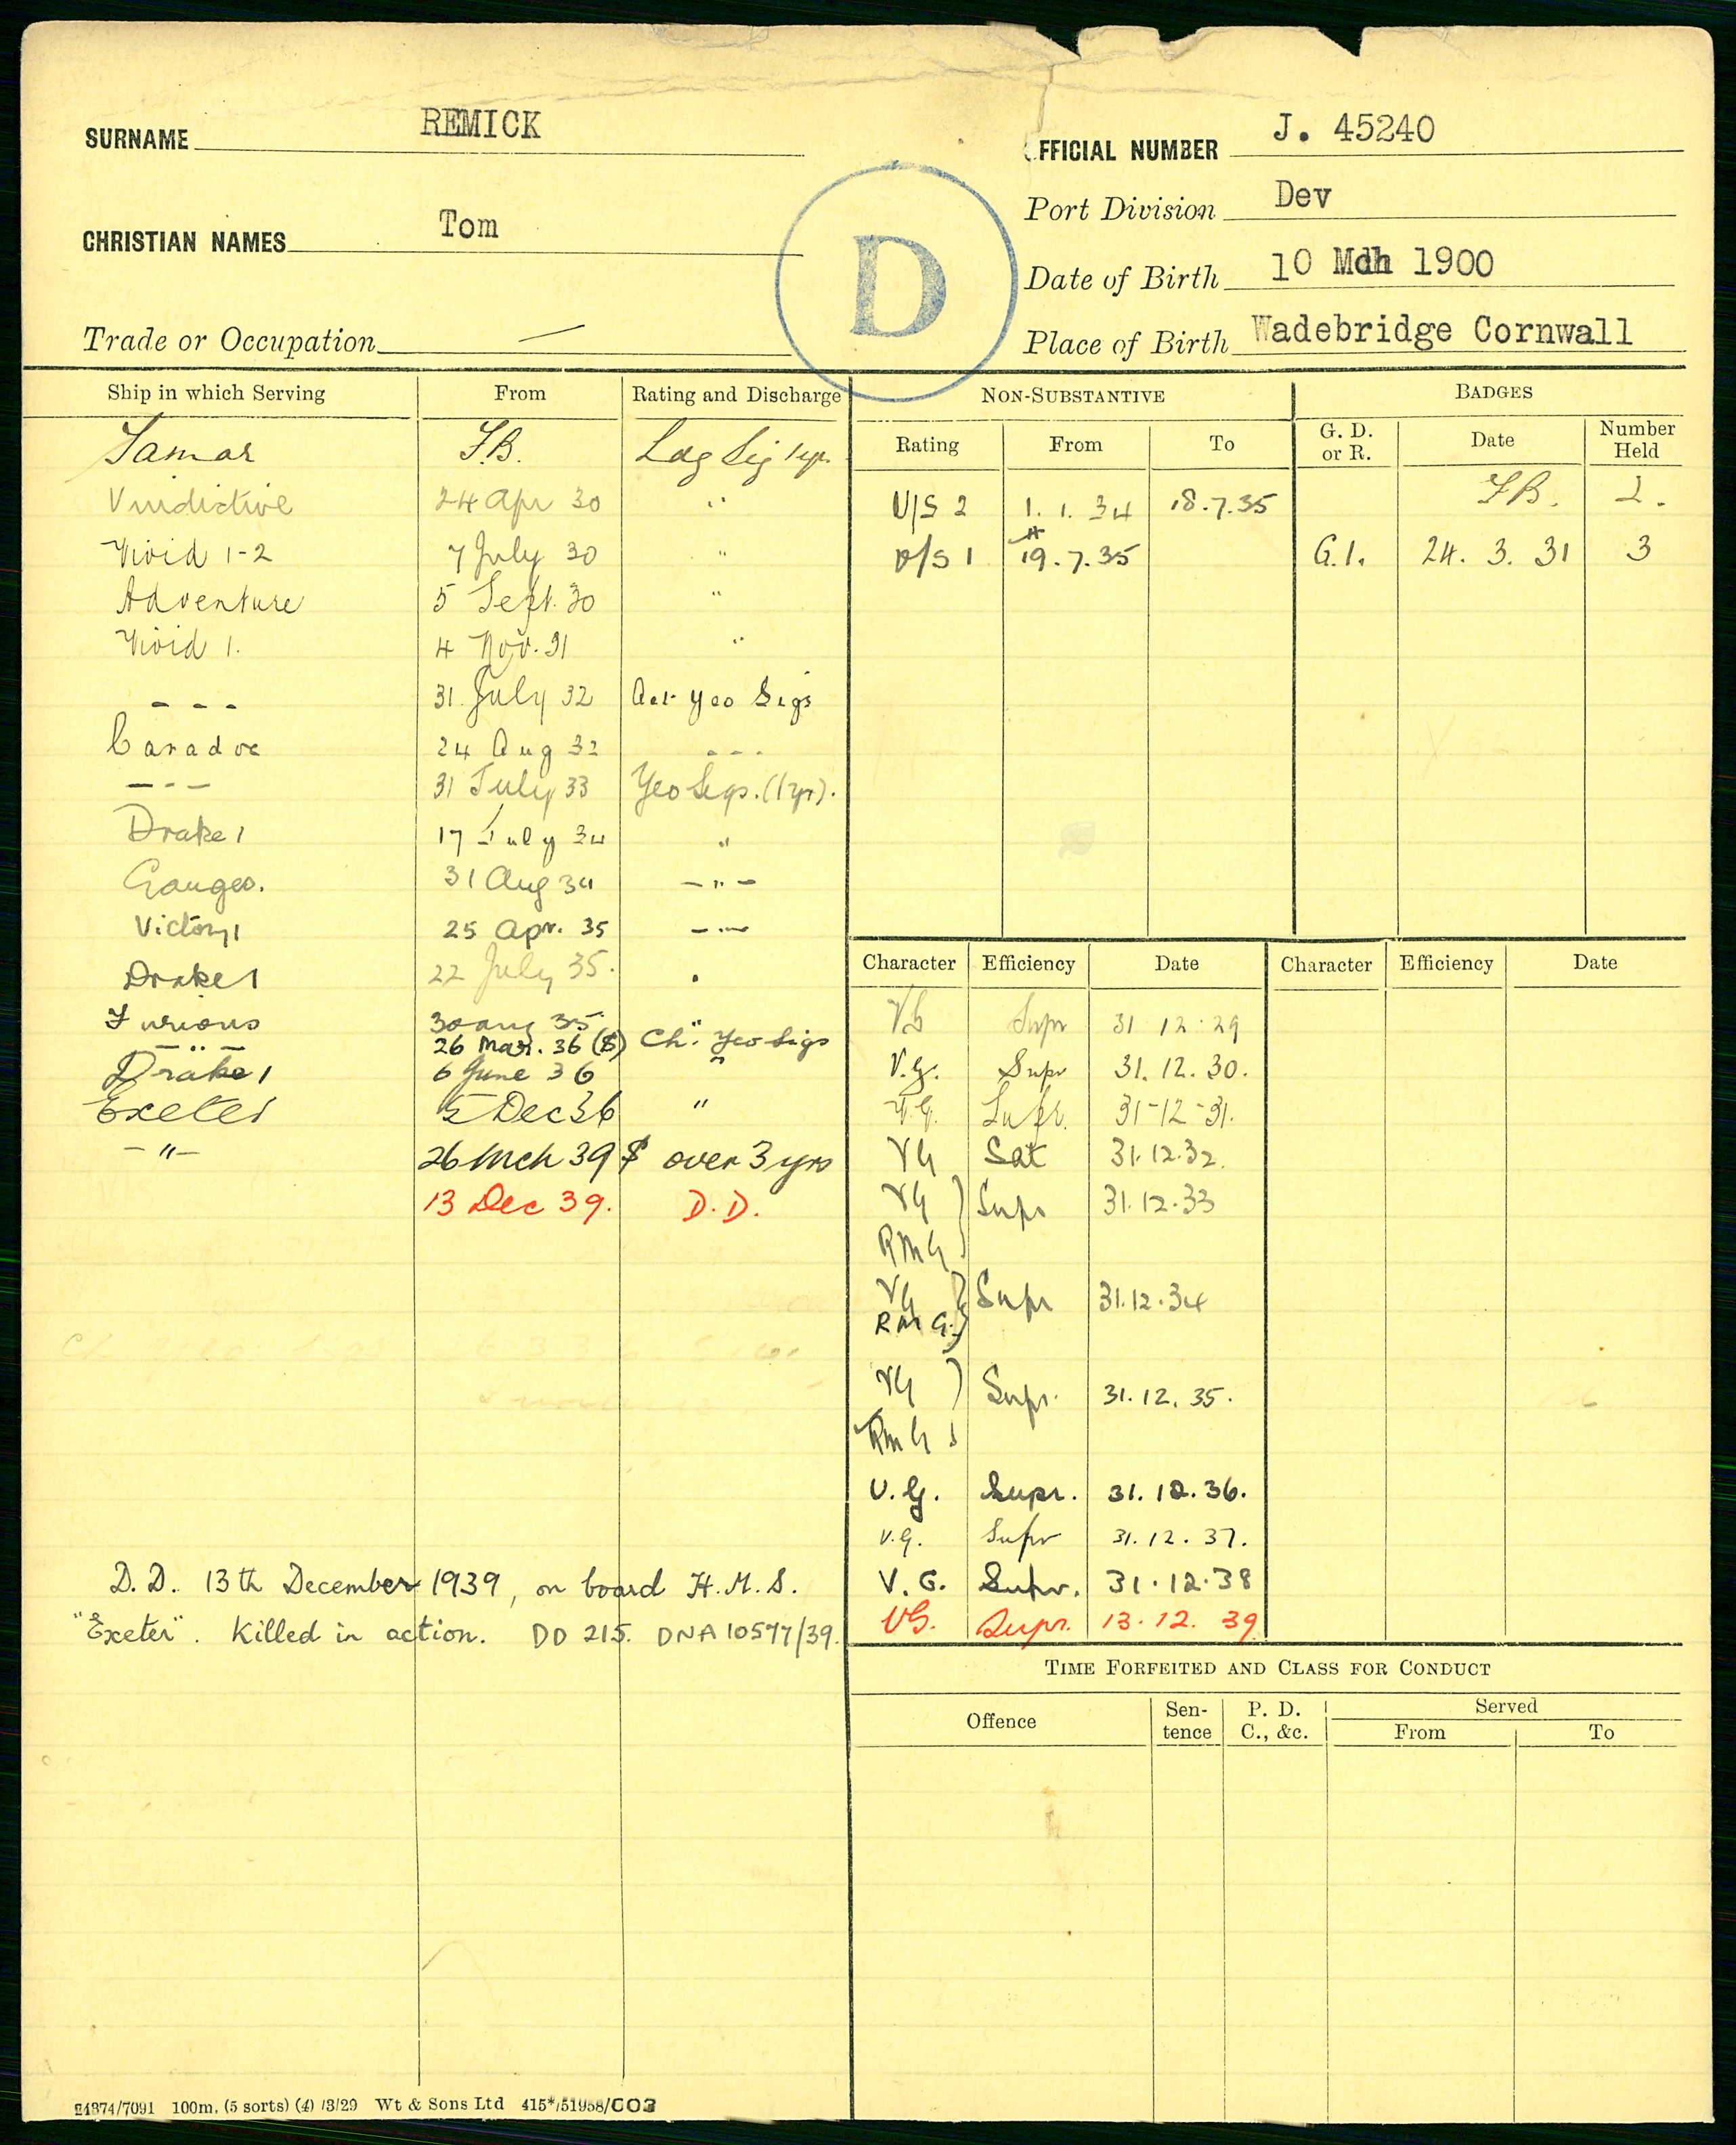 SURNAME REMICK
FFICIAL NUMBER J. 45240
Port Division Dev
CHRISTIAN NAMES Tom
D
Date of Birth 10 Mch 1900
Trade or Occupation —
Place of Birth Wadebridge Cornwall
Ship in which Serving From Rating and Discharge
Tamar F.B. Ldg Sig 1yr.
Vindictive 24 Apr 30 "
Vivid 1-2 7 July 30 "
Adventure 5 Sept. 30 "
Vivid 1. 4 Nov. 31 "
- - - 31 July 32 Act Yeo Sigs
Caradoc 24 Aug 32 - - -
- - - 31 July 33 Yeo Sigs. (1yr).
Drake 1 17 July 34 "
Ganges. 31 Aug 34 - " -
Victory 1 25 Apr. 35 - " -
Drake 1 22 July 35. "
Furious 30 Aug 35 "
- " - 26 Mar. 36 ($) Ch. Yeo Sigs
Drake 1 6 June 36 "
Exeter 5 Dec 36 "
- " - 26 Mch 39 $ over 3 yrs
13 Dec 39. D.D.
D.D. 13th December 1939, on board H.M.S.
"Exeter". Killed in action. DD 215. DNA 10577/39.
NON-SUBSTANTIVE
Rating From To
V/S 2 1. 1. 34 18.7.35
V/S 1 19.7.35
BADGES
G. D. or R. Date Number Held
F.B. 2.
G.1. 24. 3. 31 3
Character Efficiency Date Character Efficiency Date
VG Supr 31 12 29
V.G. Supr 31. 12. 30.
V.G. Supr. 31-12-31.
VG Sat 31.12.32.
VG ) Supr 31.12.33
RMG )
VG ) Supr 31.12.34
RMG )
VG ) Supr. 31.12.35.
RMG )
V.G. Supr. 31.12.36.
V.G. Supr 31.12.37.
V.G. Supr. 31.12.38
VG. Supr. 13.12.39
TIME FORFEITED AND CLASS FOR CONDUCT
Offence Sen- tence P. D. C., &c. Served
From To
24374/7091 100m. (5 sorts) (4) /3/29 Wt & Sons Ltd 415*/51958/CO3